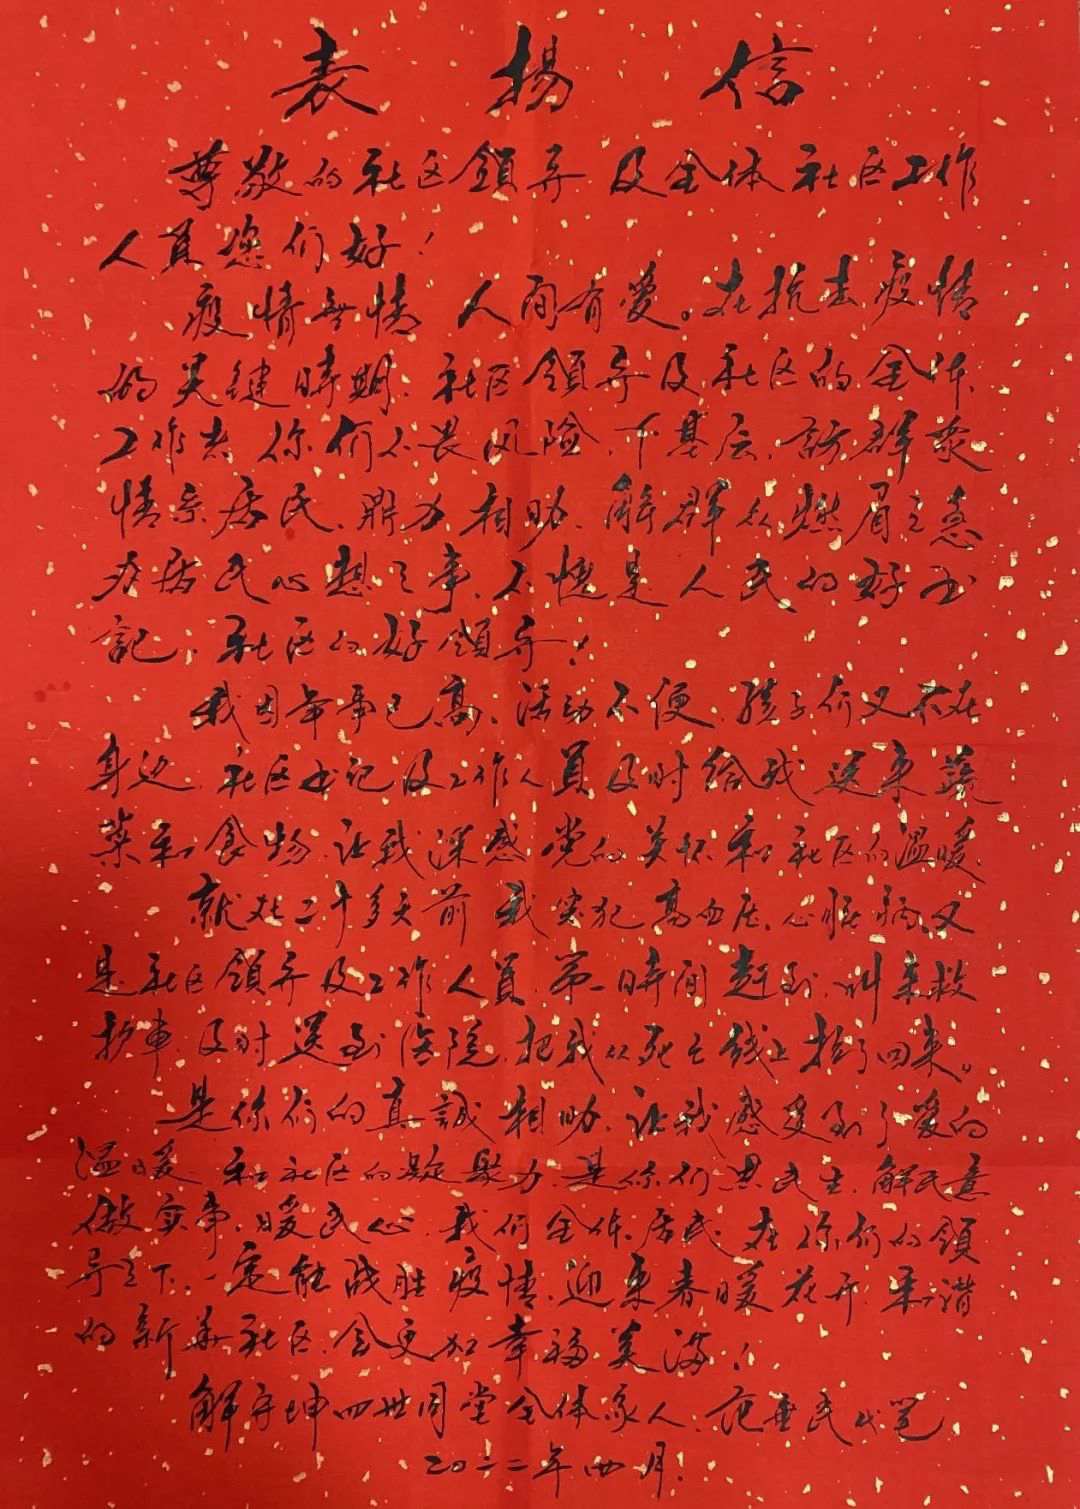 表扬信
尊敬的社区領导及全体社区工作
人員您们好！
疫情無情 人间有愛。在抗击疫情
的关键時期、社区領导及社区的全体
工作者 你们不畏风险、下基层、訪群衆
情系居民、鼎力相助、解群众燃眉之急
办居民心想之事、不愧是人民的好书
記、社区的好領导！
我因年事已高、活动不便、孩子们又不在
身边、社区书记及工作人員及时给我送来蔬
菜和食物、让我深感党的关怀和社区的温暖、
就在二十多天前 我突犯高血压、心脏病又
是社区領导及工作人員、第一時间赶到、叫来救
护車、及时送到医院、把我从死亡线上抢了回来。
是你们的真誠相助、让我感受到了爱的
温暖、和社区的凝聚力、是你们思民生、解民意
做实事、暖民心、我们全体居民、在你们的領
导之下、一定能战胜疫情、迎来春暖花开、和谐
的新华社区、会更加幸福美满！
解守坤四世同堂全体家人、范世民代笔
二〇二二年四月.